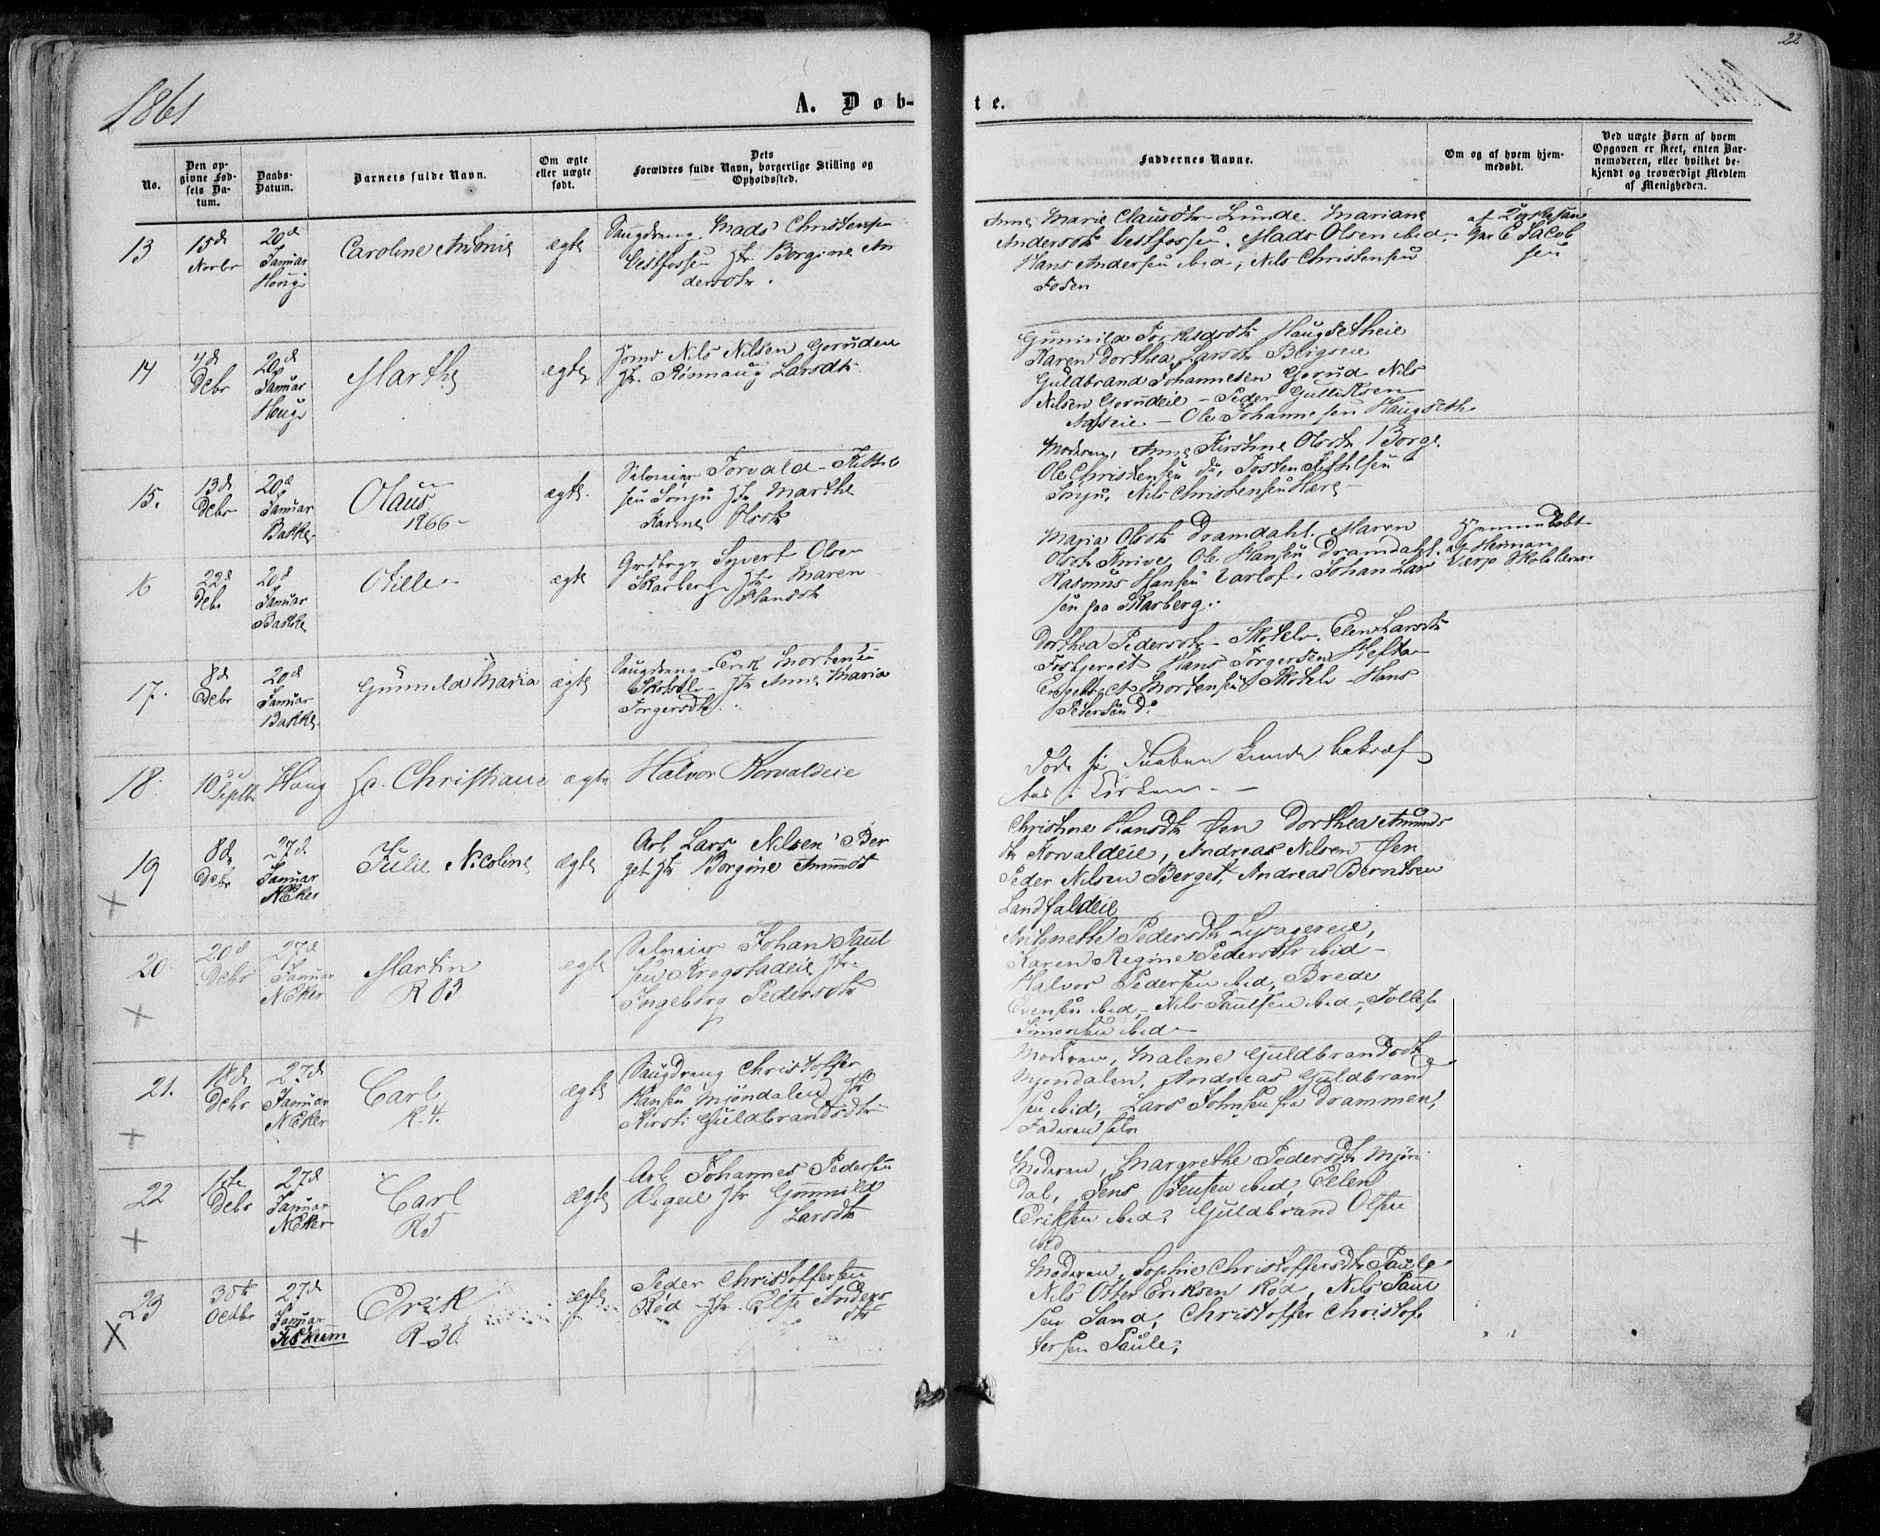 1861
22
A. Døb-
te.
No.
Den op-
givne Fød-
sels Da-
tum.
Daabs-
Datum.
Barnets fulde Navn.
Om ægte
eller uægte
født.
Dets
Forældres fulde Navn, borgerlige Stilling og
Opholdssted.
Faddernes Navne.
Om og af hvem hjem-
medøbt.
Ved uægte Børn af hvem
Opgaven er skeet, enten Bar-
nemoderen, eller hvilket be-
kjendt og troværdigt Medlem
af Menigheden.
13
15d
Novbr
20d
Januar
Houg
Caroline Antonie
ægte
Saugdreng Mads Christensen
Vestfossen Hr. Borgine An
dersdtr.
Anne Marie Clausdtr Lunde Mariane
Andersdtr Vestfossen. Mads Olsen ibid.
Hans Andersen ibid, Nils Christensen
Fosen
af
E Jacob
sen
14
4d
Debr
20d
Januar
Houg
Marthe
ægte
Nils Nilsen Goruden
Hr. Rönnaug Larsdtr
Gunnild Torkildsdtr Haugsetheie
Karen Dorthea Larsdtr
Guldbrand Johannesen Gorud Nils
Nilsen Gorudeie - Peder Gulliksen
Aaseie - Ole Johannesen Haugseth
15.
13d
Debr
20d
Januar
Bakke
Olaus
1866
ægte.
Selveier Torvald Kittel
sen Sonju Hr Marthe
Karine Olsdtr
Moderen, Anne Kirstine Olsdtr Borge
Ole Christensen do, Josten Kittilsen
Sonju, Nils Christensen Hære
16
22d
Debr
20d
Januar
Bakke
Otille
ægte
Grdbrgr Syvert Olsen
Skarberg Hr Maren
Hansdtr
Maria Olsdtr Dramdahl. Maren
Olsdtr Ole Hansen Dramdahl.
Rasmus Hansen Varlof. Johan Lar
sen paa Skarberg.
Hjemmedøbt
af Herman
Værp Skolelærer
17.
8d
Debr
20d
Januar
Bakke
Gunnila Maria
ægte
Saugdreng Erik Mortensen
Skotsel Hr Anne Maria
Torgersdtr.
Dorthea Pedersdtr Skotsel. Elen Larsdtr
Hans Torgersen Hefte
Engebret Mortensen Skotsel - Hans
Pedersen Do
18.
10
Septb
Houg
Christiane
ægte
Halvor Korvaldeie
Døde før Daaben bekræf
tes i Kirken
19
8d
Debr
27d
Januar
NEker
Julie Nicoline
ægte
Arb. Lars Nilsen Ber
get Hr Borgine Amundt
Christine Hansdtr Øen Dorthea Amunds
dtr Korvaldeie, Andreas Nilsen Øen
Peder Nilsen Berget, Andreas Berntsen
Landfaldeie
20.
20d
Debr
27d
Januar
NEker
Martin
R 83
ægte
Selveier Johan Paul
sen Krogstadeie Hr.
Ingeborg Pedersdtr
Antonette Pedersdtr
Karen Regine Pedersdtr ibid
Halvor Pedersen ibid, Brede
Evensen ibid, Nils Paulsen ibid, Tollef
Simensen ibid
21.
18d
Debr
27d
Januar
NEker
Carl
R-4.
ægte
Saugdreng Christoffer
Hansen Mjøndalen Hr
Kirsti Guldbrandsdtr
Moderen, Malene Guldbrandsdtr
Mjøndalen, Andreas Guldbrand
sen ibid, Lars Johnsen fra Drammen,
Faderen selv
22
1ste
Debr
27d
Januar
NEker
Carl
R5
ægte
Arb. Johannes Pedersen
Hr Gunnild
Larsdtr
Moderen, Margrethe Pedersdtr Mjøn
dal, Jens Jensen ibid, Eelen
Eriksen ibid, Guldbrand Olsen
ibid
23
30te
Octbr
27d
Januar
Fiskum
Erik
R-30
ægte
Peder Christoffersen
Rød Hr. Else Anders
dtr
Moderen, Sophie Christoffersdtr Paule
Nils Otter Eriksen Rød, Nils Paul
sen Sand, Christoffer Christof
fersen Paule,